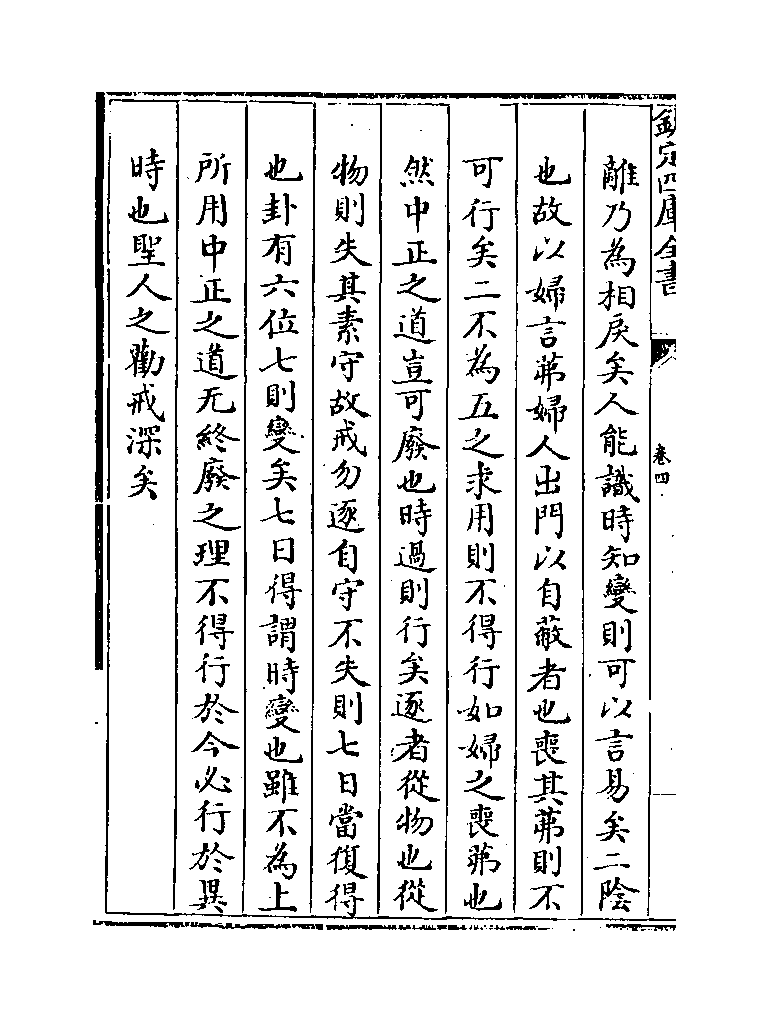 欽定四庫全書
卷四
離乃為相戾矣人能識時知變則可以言易矣二陰
也故以婦言茀婦人出門以自蔽者也喪其茀則不
可行矣二不為五之求用則不得行如婦之喪茀也
然中正之道豈可廢也時過則行矣逐者從物也從
物則失其素守故戒勿逐自守不失則七日當復得
也卦有六位七則變矣七日得謂時變也雖不為上
所用中正之道无終廢之理不得行於今必行於異
時也聖人之勸戒深矣